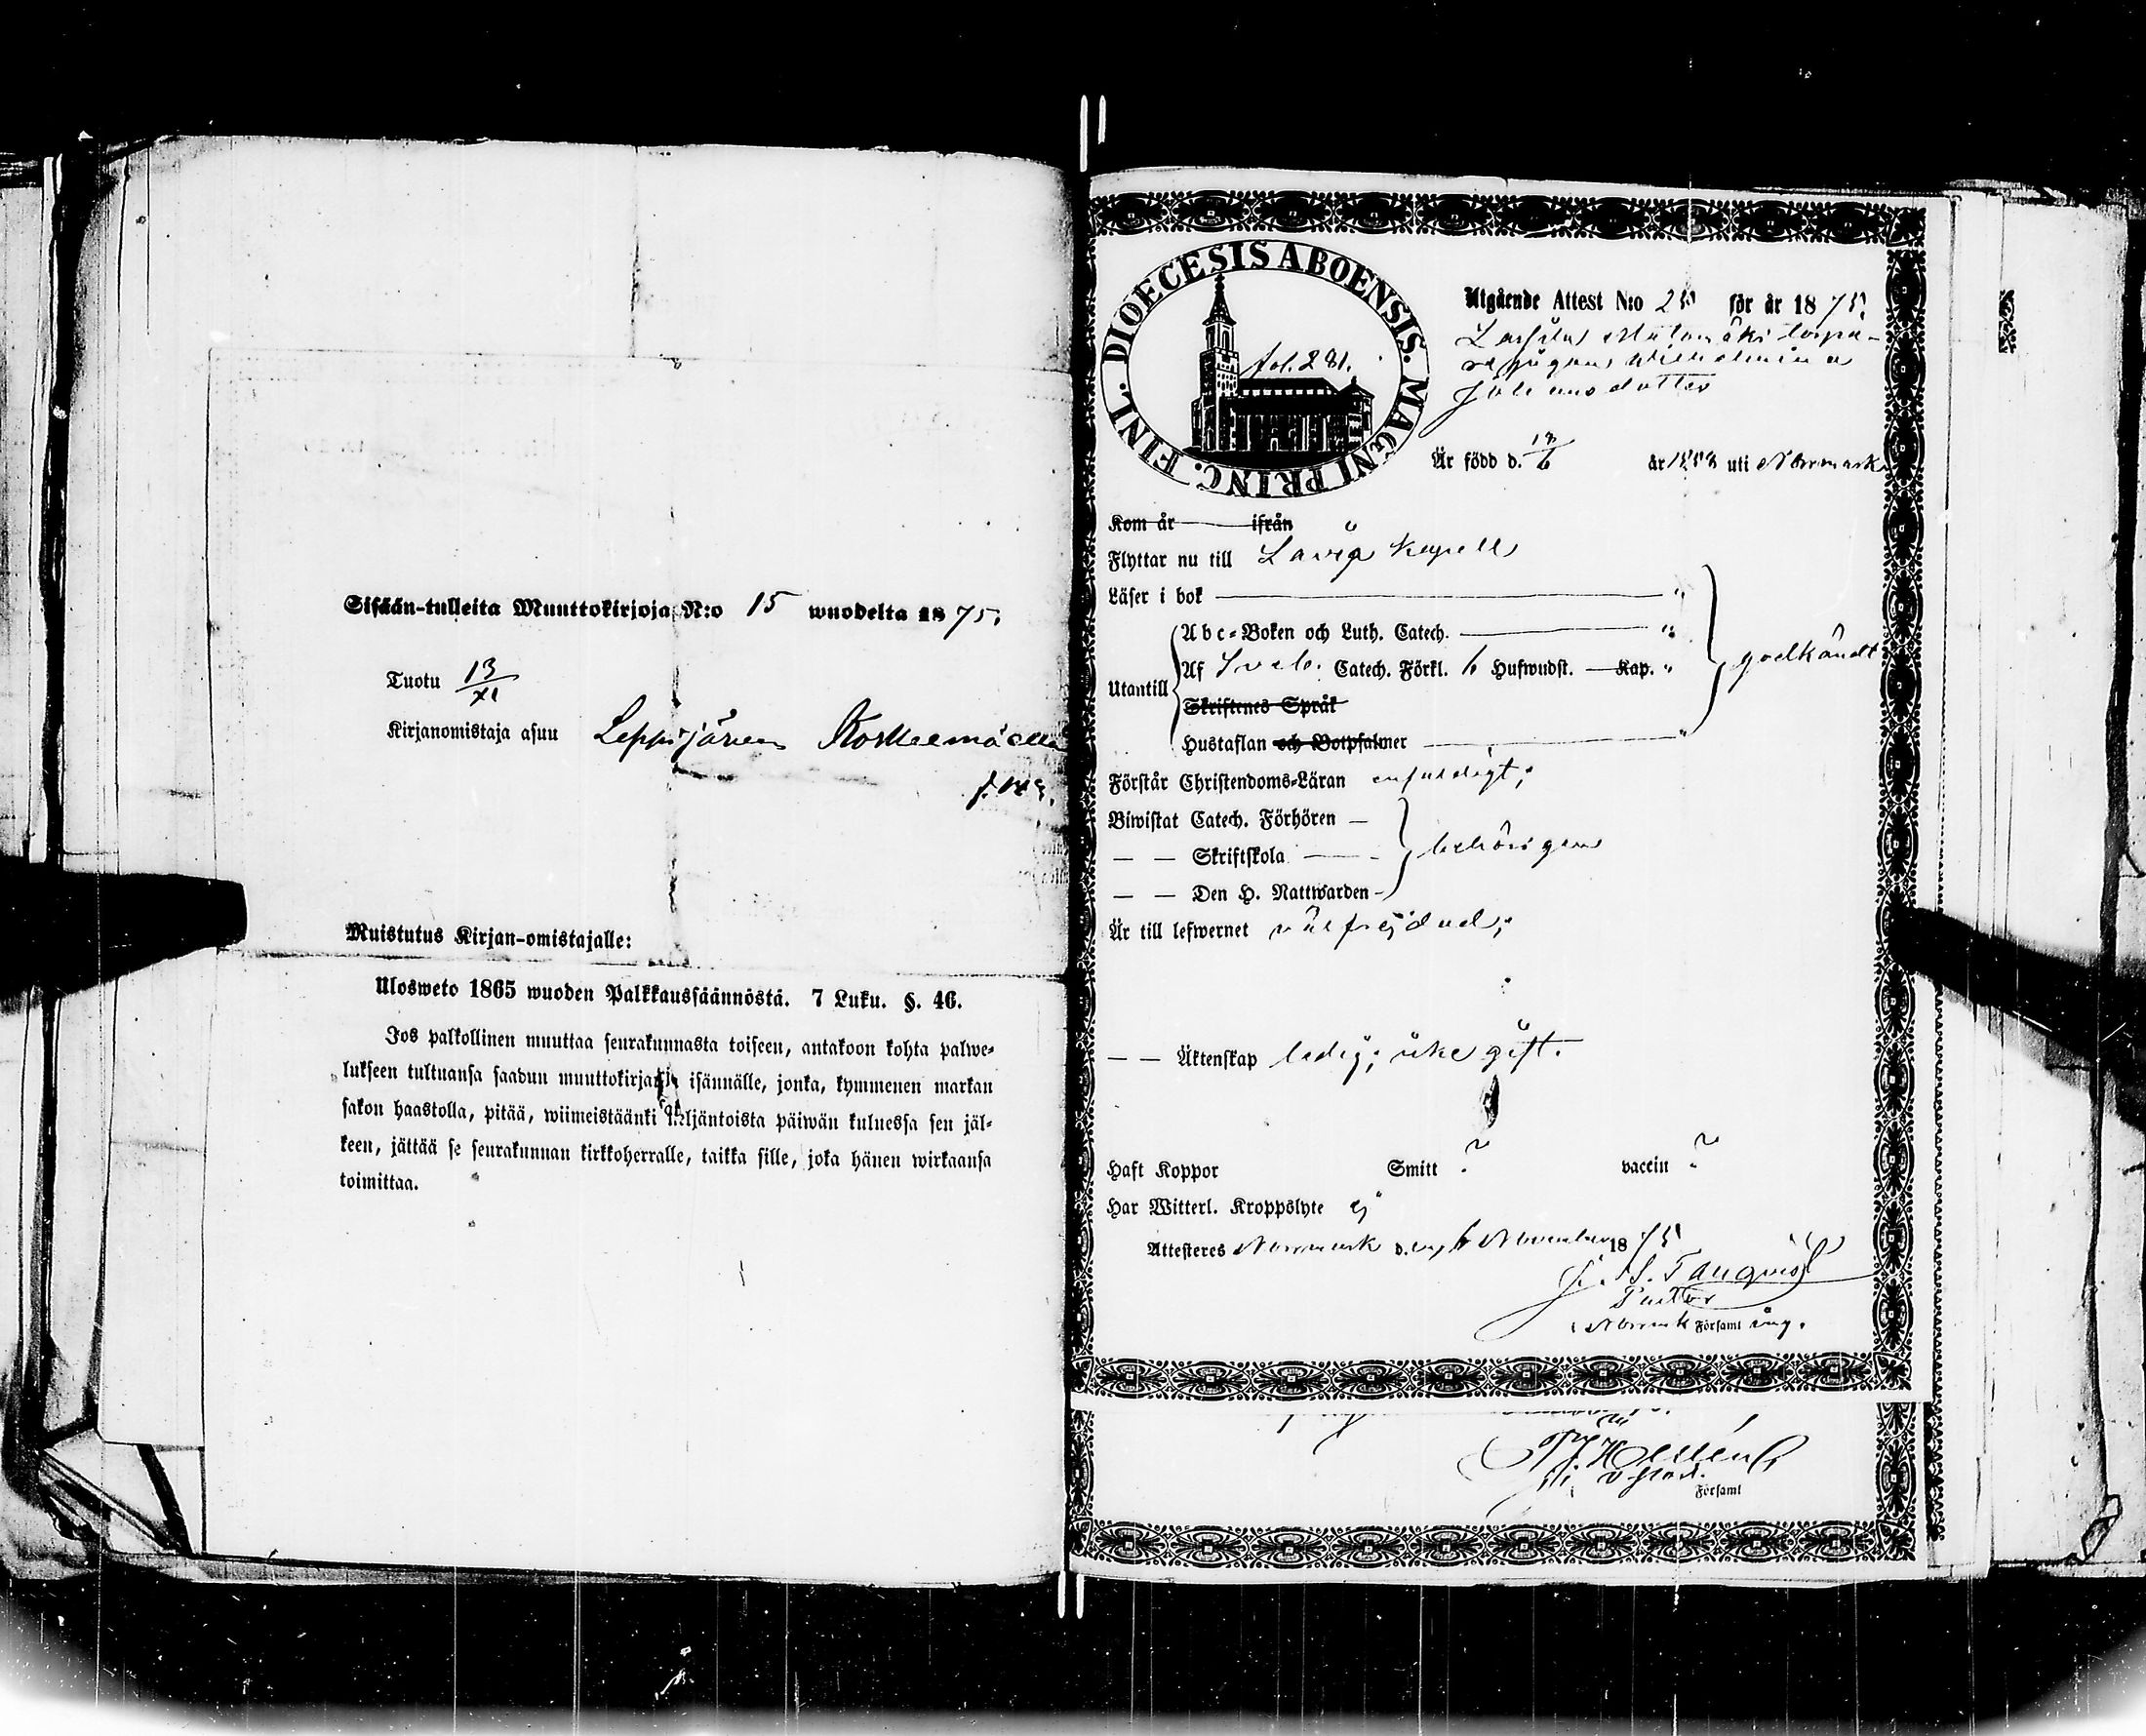 Sisään-tulleita Muuttokirjoja N:o 15 wuodelta 1875.
Tuotu 13/XI
Kirjanomistaja asuu Leppijärven Korkeemäellä
Muistutus Kirjan-omistajalle:
Ulosweto 1865 wuoden Palkkaussäännöstä. 7 Luku. §. 46.
Jos palkollinen muuttaa seurakunnasta toiseen, antakoon kohta palwe-
lukseen tultuansa saadun muuttokirjan isännälle, jonka, kymmenen markan
sakon haastolla, pitää, wiimeistäänki neljäntoista päiwän kuluessa sen jäl-
keen, jättää se seurakunnan kirkkoherralle, taikka sille, joka hänen wirkaansa
toimittaa.
FINL. DIOECESIS ABOENSIS. MAGNI PRINC.
fol. 281.
Utgående Attest N:o för år 1875.
torpa-
repigan Wilhelmina
Johansdotter
Är född d. 13/6 år uti Norrmark
Kom år ifrån
Flyttar nu till Lavia Kapell
Läser i bok "
Utantill
Abc-Boken och Luth. Catech. "
Af Sveb. Catech. Förkl. 6 Hufwudst. Kap. "
godkändt
Skriftenes Språk
Hustaflan och Botpsalmer "
Förstår Christendoms-Läran enfaldigt;
Biwistat Catech. Förhören
— — Skriftskola
behörigen
— — Den H. Nattwarden
Är till lefwernet välfrejdad;
— — Äktenskap ledig; icke gift.
Haft Koppor Smitt ? vaccin ?
Har Witterl. Kroppslyte ej
Attesteras Norrmark d. 6 November 1875
Tanqvist
Pastor
i Norrmark Församling.
Hellén
Församl